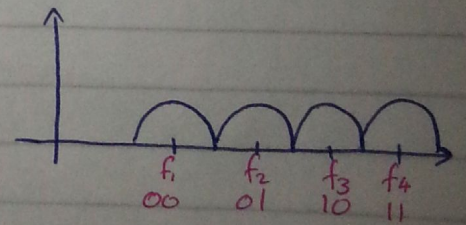 f₁ f₂ f₃ f₄
00 01 10 11